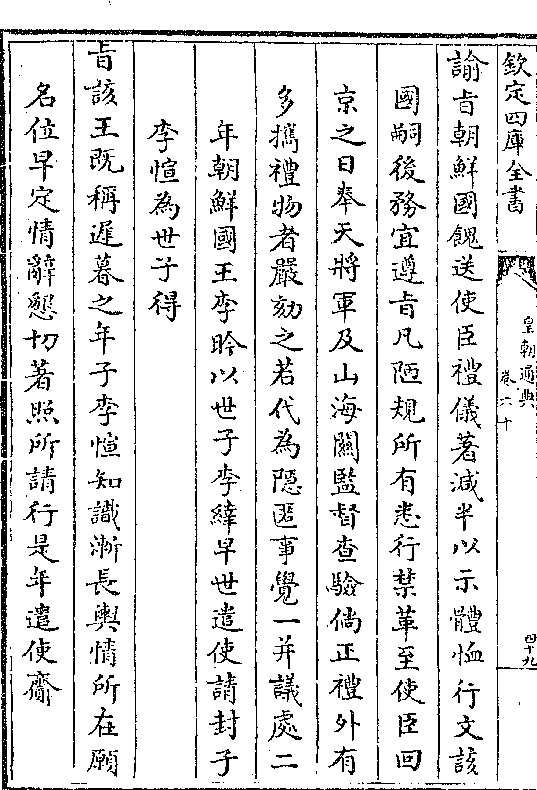 欽定四庫全書
皇朝通典
卷六十
四十九
諭㫖朝鮮國餽送使臣禮儀著減半以示體恤行文該
國嗣後務宜遵㫖凡陋規所有悉行禁革至使臣回
京之日奉天將軍及山海關監督查驗倘正禮外有
多攜禮物者嚴劾之若代為隱匿事覺一并議處二
年朝鮮國王李昑以世子李緈早世遣使請封子
李愃為世子得
㫖該王既稱遲暮之年子李愃知識漸長輿情所在願
名位早定情辭懇切著照所請行是年遣使齎